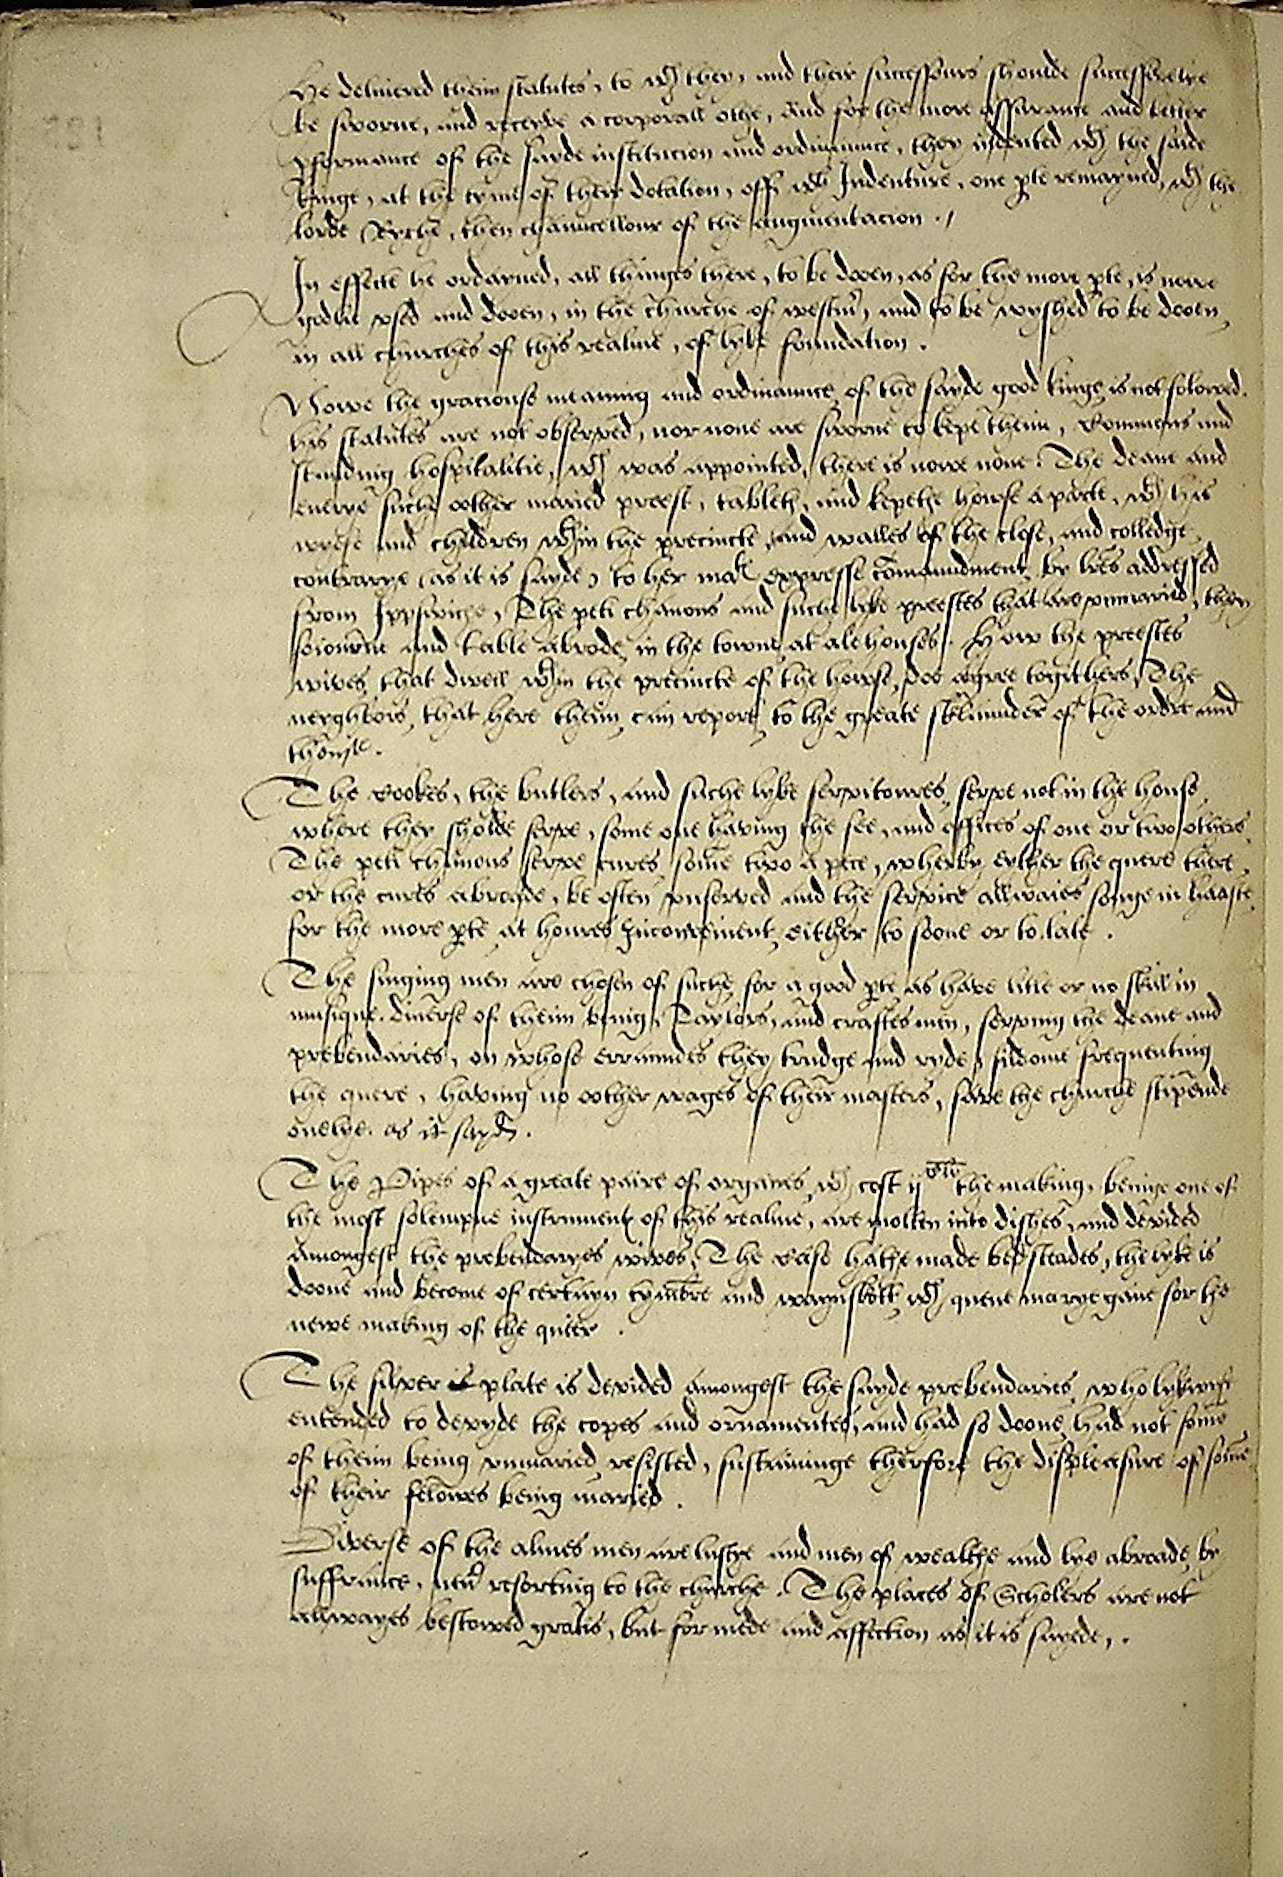 He delivered theim statutes, to wch they, and their successours shoulde successivelye
be sworne, and receyve a corporall othe, And for the more assurance and better
pformance of the sayde institucion and ordinaunce, they indented wth the saide
Kinge, at the tyme of their dotation, off wch Indenture, one pte remayned, wth the
lorde Ryche, then chauncellour of the augmentacion ./
In effecte he ordayned, all thinges there, to be dooen, as for the more pte, is nowe
godlie vsed and dooen, in the churche of westmr, and to be wysshed to be dooen
in all churches of this realme, of lyke foundation .
Nowe the graciouse meaning and ordinaunce of the sayde good kinge is not folowed.
his statutes are not observed, nor none are sworne to kepe theim, Commons and
standing hospitalitie, wch was appointed, there is nowe none. The deane and
everye suche oother maried preest, tableth, and kepethe howse aparte, wth his
wyefe and children wthin the precincte, and walles of the close, and colledge
contrarye (as it is sayde) to her mats expresse comaundment by lres addressed
from Ippswiche, The peti chanons and suche lyke preestes that are vnmaried, they
soiourne and table abrode, in the towne at alehouses. How the preestes
wives, that dwell wthin the precincte of the howse, doo agree togithers, The
neyghbors, that here theim, can report, to the greate sklaunder of the ordre and
thouse.
The Cookes, the butlers, and suche lyke servitoures, serve not in the house
where they sholde serve, some one having the fee, and offices of one or two others
The peti chanons serve cures, some two a pece, wherby eyther the quere there
or the cures abroyde, be often vnserved and the service allwaies songe in haaste
for the more pte at houres Inconvenient, either to soone or to late .
The singing men are chosen of suche, for a good pte, as have litle or no skill in
musique. diverse of theim being, Taylors, and craftes men, serving the deane and
prebendaries, on whose erraundes they trudge and ryde, sildome frequenting
the quere, having no oother wages of their masters, save the churche stipende
onelye. as it sayd.
The Pipes of a greate paire of organes, wch cost ij the making, beinge one of
the most solempne instrument of this realme, are molten into dishes, and devided
amongest the prebendaryes wives, The Case hathe made bedsteades, the lyke is
doone and become of certayn tymbre and waynskott, wch, quene marye gave for the
newe making of the quier .
The silver plate is devided amongest the sayde prebendaries, who lykwise
entended to devyde the copes and ornamentes, and had so doone, had not some
of theim being vnmaried resisted, sustaininge therfore the displeasure of some
of their felowes being maried .
Diverse of the almes men are lustye and men of wealthe and lye abroade, by
suffrance, nevr resorting to the churche. The places of Scholers are not
allwayes bestowed gratis, but for mede and affection as it is sayede, .